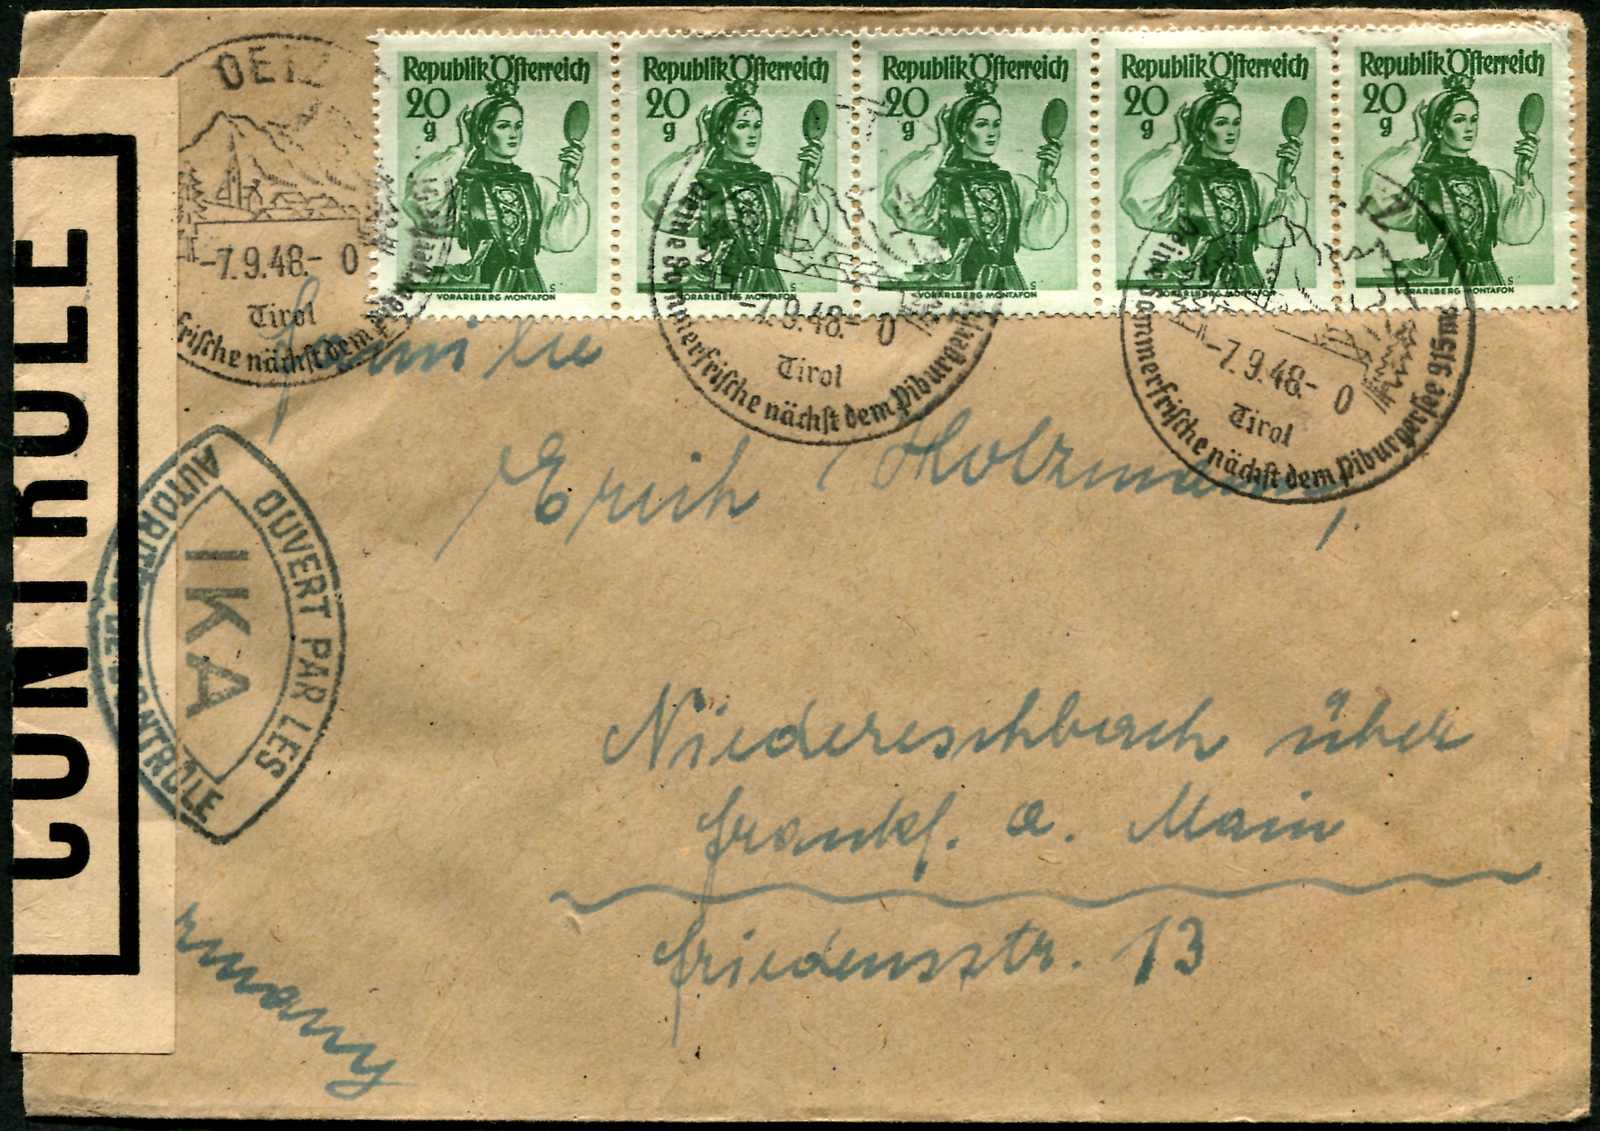 Republik Österreich
20
g
VORARLBERG MONTAFON
S
Republik Österreich
20
g
VORARLBERG MONTAFON
S
Republik Österreich
20
g
VORARLBERG MONTAFON
S
Republik Österreich
20
g
VORARLBERG MONTAFON
S
Republik Österreich
20
g
VORARLBERG MONTAFON
S
OETZ
-7.9.48.- 0
Tirol
frische nächst dem Piburger
7.9.48.- 0
Tirol
Deine Sommerfrische nächst dem Piburger
TZ
-7.9.48.- 0
Tirol
Deine Sommerfrische nächst dem Piburgersee 915m
CONTROLE
OUVERT PAR LES
AUTORITÉS DE CONTRÔLE
IKA
Familie
Erich Holzmann,
Niedereschbach über
Frankf. a. Main
Friedensstr. 13
rmany